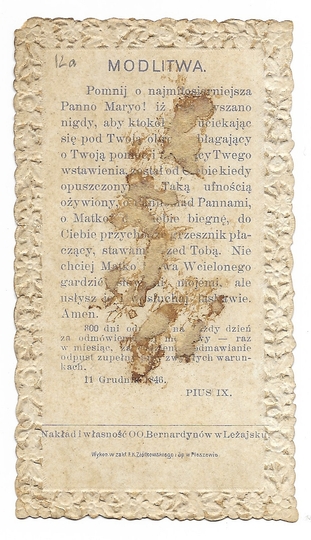 12a
MODLITWA.
Pomnij o najmiłosierniejsza
Panno Maryo! iż wszano
nigdy, aby ktoko uciekając
się pod Twoją błagający
o Twoją pom cy Twego
wstawienia, został od Ciebie kiedy
opuszczony Taką ufnością
ożywiony, o nad Pannami,
o Matko biegnę, do
Ciebie przych grzesznik pła-
czący, stawam przed Tobą. Nie
chciej Matko Wcielonego
gardzić mojemi, ale
usłysz słuchaj łaskawie.
Amen.
300 dni od na dy dzień
za odmówienie wy — raz
w miesiąc, odmawianie
odpust zupełn zwykłych warun-
kach.
11 Grudnia 46.
PIUS IX.
Nakład i własność OO. Bernardynów w Leżajsku
Wykon. w zakł. Ziółkowskiego i Sp. w Pleszewie.